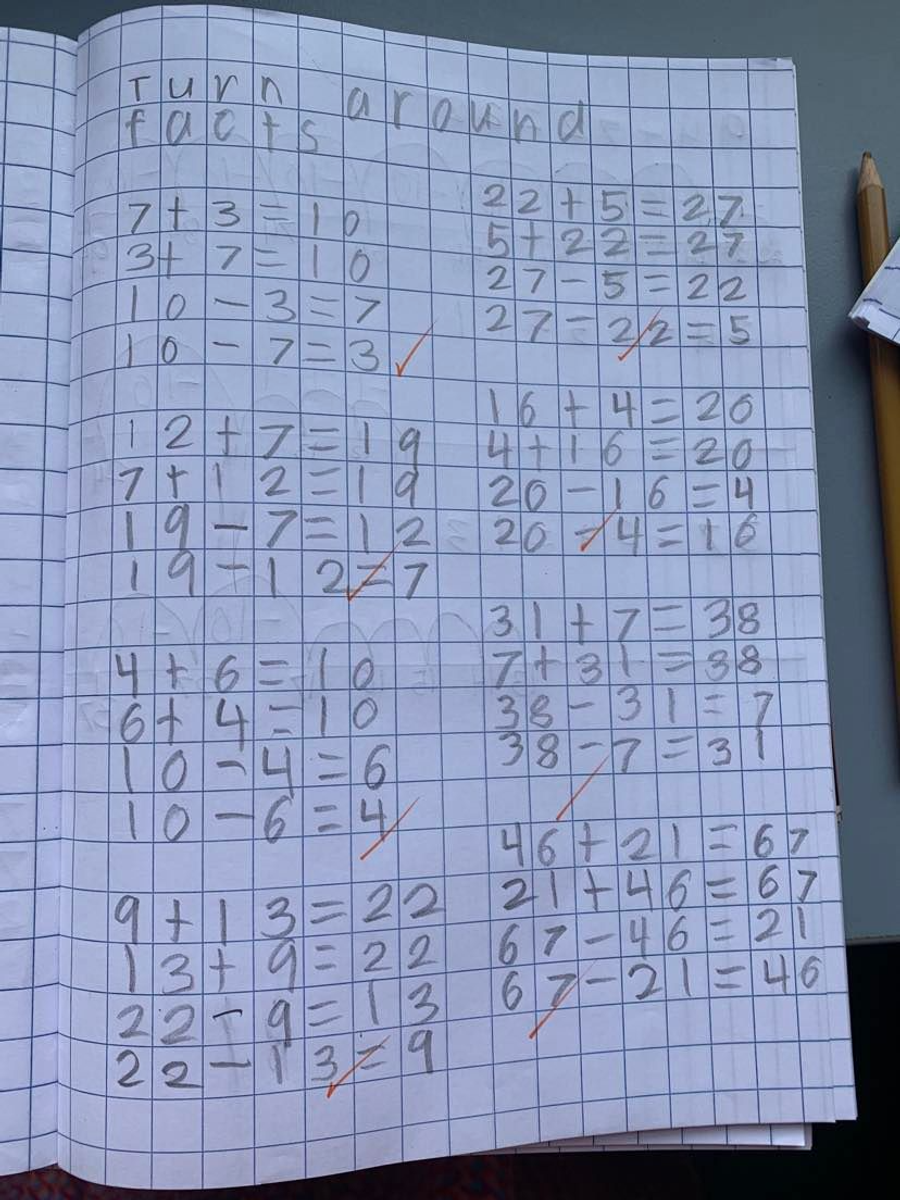 Turn around
facts
7+3=10
3+7=10
10-3=7
10-7=3
12+7=19
7+12=19
19-7=12
19-12=7
4+6=10
6+4=10
10-4=6
10-6=4
9+13=22
13+9=22
22-9=13
22-13=9
22+5=27
5+22=27
27-5=22
27-22=5
16+4=20
4+16=20
20-16=4
20-4=16
31+7=38
7+31=38
38-31=7
38-7=31
46+21=67
21+46=67
67-46=21
67-21=46